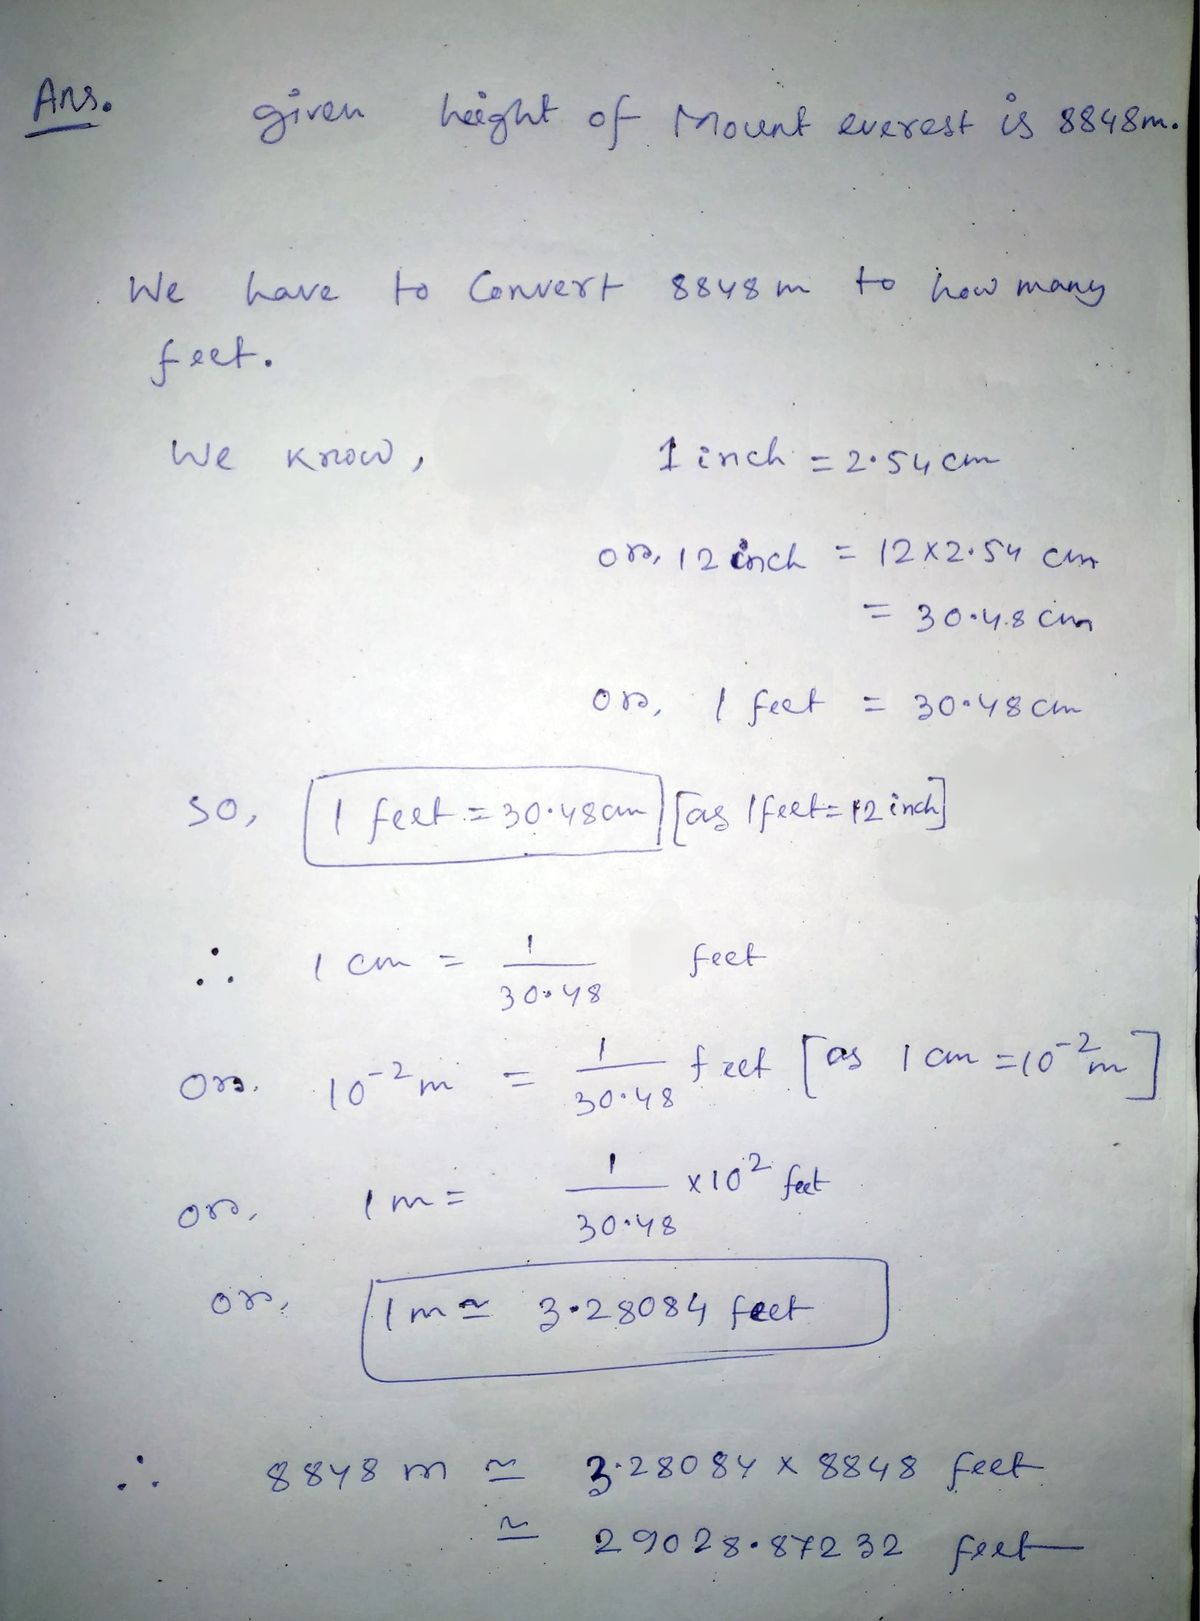 Ans. given height of Mount everest is 8848m.
We have to Convert 8848m to how many
feet.
We know, 1 inch = 2.54 cm
or, 12 inch = 12 × 2.54 cm
= 30.48 cm
or, 1 feet = 30.48 cm
So, 1 feet = 30.48 cm [as 1 feet = 12 inch]
∴ 1 cm = 1/30.48 feet
or. 10⁻² m = 1/30.48 feet [as 1 cm = 10⁻² m]
or, 1 m = 1/30.48 × 10² feet
or, 1 m ≃ 3.28084 feet
∴ 8848 m ≃ 3.28084 × 8848 feet
≃ 29028.87232 feet